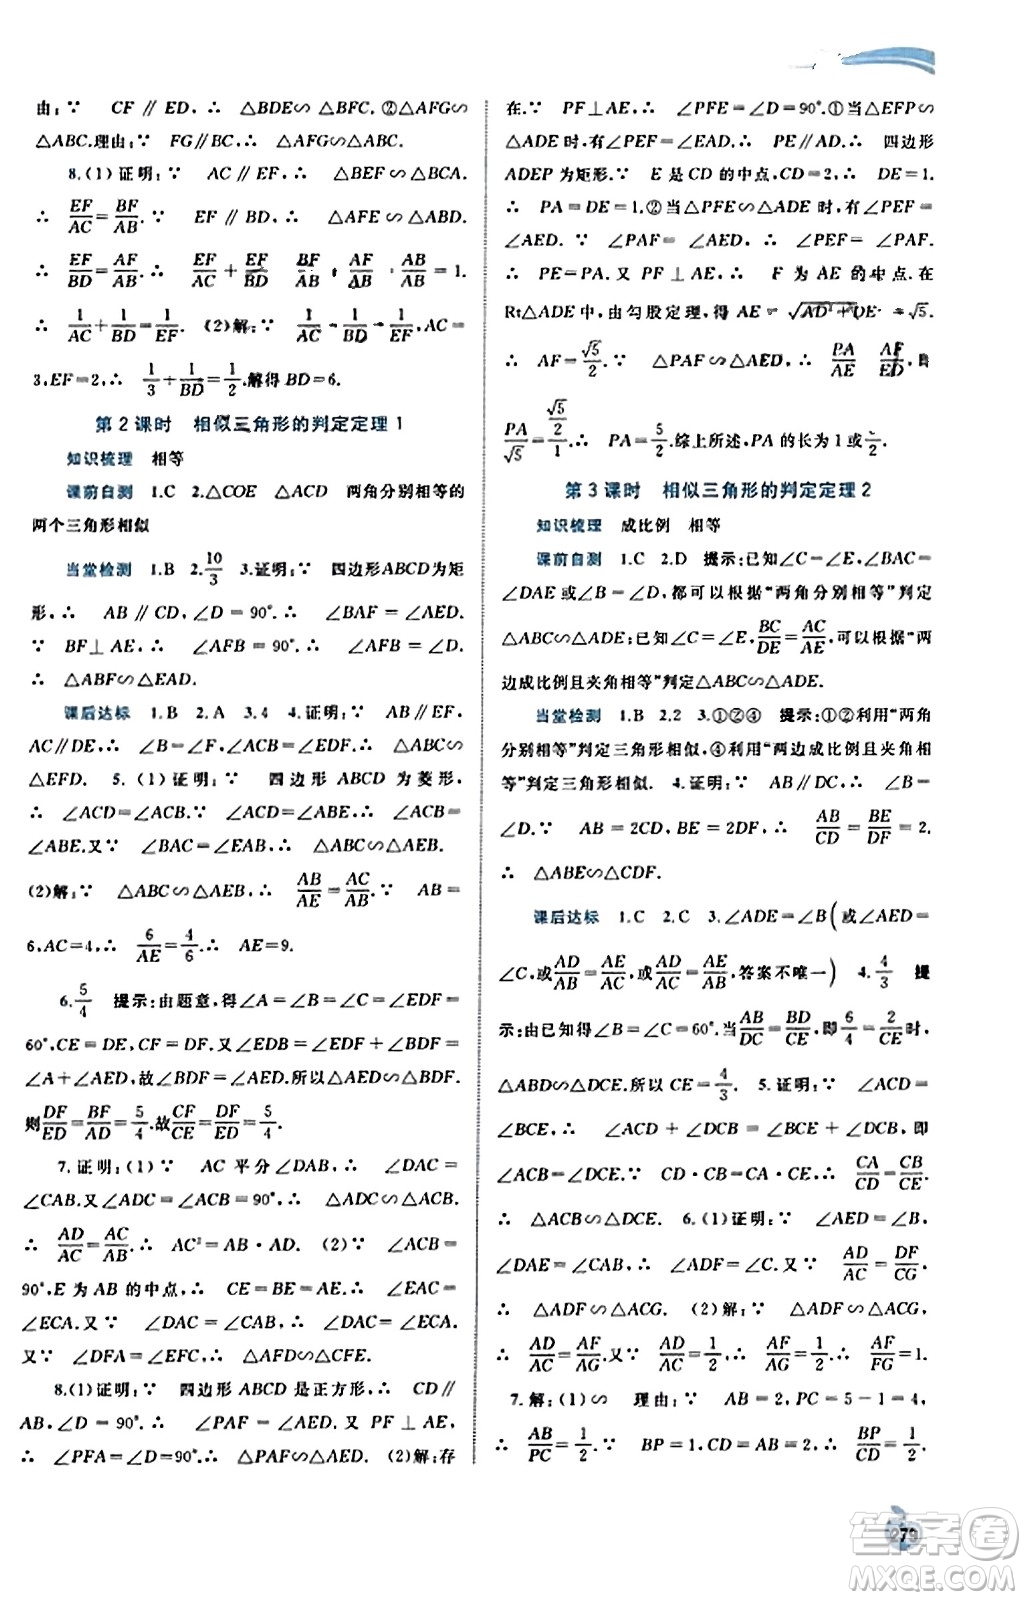 由:∵ CF∥ED,∴ △BDE∽△BFC.②△AFG∽
△ABC.理由:∵ FG∥BC,∴ △AFG∽△ABC.
8.(1)证明:∵ AC∥EF,∴ △BEF∽△BCA.
∴ EF/AC=BF/AB.∵ EF∥BD,∴ △AFE∽△ABD.
∴ EF/BD=AF/AB.∴ EF/AC+EF/BD=BF/AB+AF/AB=AB/AB=1.
∴ 1/AC+1/BD=1/EF. (2)解:∵ 1/AC+1/BD=1/EF,AC=
3,EF=2,∴ 1/3+1/BD=1/2.解得BD=6.
第2课时 相似三角形的判定定理1
知识梳理 相等
课前自测 1.C 2.△COE △ACD 两角分别相等的
两个三角形相似
当堂检测 1.B 2.10/3 3.证明:∵ 四边形ABCD为矩
形,∴ AB∥CD,∠D=90°.∴ ∠BAF=∠AED.
∵ BF⊥AE,∴ ∠AFB=90°.∴ ∠AFB=∠D.
∴ △ABF∽△EAD.
课后达标 1.B 2.A 3.4 4.证明:∵ AB∥EF,
AC∥DE,∴ ∠B=∠F,∠ACB=∠EDF.∴ △ABC∽
△EFD. 5.(1)证明:∵ 四边形ABCD为菱形,
∴ ∠ACD=∠ACB.∵ ∠ACD=∠ABE,∴ ∠ACB=
∠ABE.又∵ ∠BAC=∠EAB,∴ △ABC∽△AEB.
(2)解:∵ △ABC∽△AEB,∴ AB/AE=AC/AB.∵ AB=
6,AC=4,∴ 6/AE=4/6.∴ AE=9.
6.5/4 提示:由题意,得∠A=∠B=∠C=∠EDF=
60°,CE=DE,CF=DF.又∠EDB=∠EDF+∠BDF=
∠A+∠AED,故∠BDF=∠AED.所以△AED∽△BDF.
则DF/ED=BF/AD=5/4.故CF/CE=DF/ED=5/4.
7.证明:(1)∵ AC平分∠DAB,∴ ∠DAC=
∠CAB.又∠ADC=∠ACB=90°,∴ △ADC∽△ACB.
∴ AD/AC=AC/AB.∴ AC²=AB·AD. (2)∵ ∠ACB=
90°,E为AB的中点,∴ CE=BE=AE.∴ ∠EAC=
∠ECA.又∵ ∠DAC=∠CAB,∴ ∠DAC=∠ECA.
又∵ ∠DFA=∠EFC,∴ △AFD∽△CFE.
8.(1)证明:∵ 四边形ABCD是正方形,∴ CD∥
AB,∠D=90°.∴ ∠PAF=∠AED.又PF⊥AE,
∴ ∠PFA=∠D=90°.∴ △PAF∽△AED. (2)解:存
在.∵ PF⊥AE,∴ ∠PFE=∠D=90°.①当△EFP∽
△ADE时,有∠PEF=∠EAD.∴ PE∥AD.∴ 四边形
ADEP为矩形.∵ E是CD的中点,CD=2,∴ DE=1.
∴ PA=DE=1.②当△PFE∽△ADE时,有∠PEF=
∠AED.∵ ∠PAF=∠AED,∴ ∠PEF=∠PAF.
∴ PE=PA.又PF⊥AE,∴ F为AE的中点.在
Rt△ADE中,由勾股定理,得AE=√AD²+DE²=√5.
∴ AF=√5/2.∵ △PAF∽△AED,∴ PA/AE=AF/ED,即
PA/√5=(√5/2)/1.∴ PA=5/2.综上所述,PA的长为1或5/2.
第3课时 相似三角形的判定定理2
知识梳理 成比例 相等
课前自测 1.C 2.D 提示:已知∠C=∠E,∠BAC=
∠DAE或∠B=∠D,可以根据“两角分别相等”判定
△ABC∽△ADE;已知∠C=∠E,BC/DE=AC/AE,可以根据“两
边成比例且夹角相等”判定△ABC∽△ADE.
当堂检测 1.B 2.2 3.①②④ 提示:①②利用“两角
分别相等”判定三角形相似,④利用“两边成比例且夹角相
等”判定三角形相似. 4.证明:∵ AB∥DC,∴ ∠B=
∠D.∵ AB=2CD,BE=2DF,∴ AB/CD=BE/DF=2.
∴ △ABE∽△CDF.
课后达标 1.C 2.C 3.∠ADE=∠B(或∠AED=
∠C,或AD/AB=AE/AC,或AD/AE=AB/AC,答案不唯一) 4.4/3 提
示:由已知得∠B=∠C=60°.当AB/DC=BD/CE,即6/4=2/CE时,
△ABD∽△DCE.所以CE=4/3. 5.证明:∵ ∠ACD=
∠BCE,∴ ∠ACD+∠BCD=∠BCE+∠DCB,即
∠ACB=∠DCE.∵ CD·CB=CA·CE,∴ CA/CD=CB/CE.
∴ △ACB∽△DCE. 6.(1)证明:∵ ∠AED=∠B,
∠DAE=∠CAB,∴ ∠ADF=∠C.∵ AD/AC=DF/CG,
∴ △ADF∽△ACG. (2)解:∵ △ADF∽△ACG,
∴ AD/AC=AF/AG.又∵ AD/AC=1/2,∴ AF/AG=1/2.∴ AF/FG=1.
7.解:(1)∽ 理由:∵ AB=2,PC=5-1=4,
∴ AB/PC=1/2.∵ BP=1,CD=AB=2,∴ BP/CD=1/2.
279
答案卷
MXQE.COM